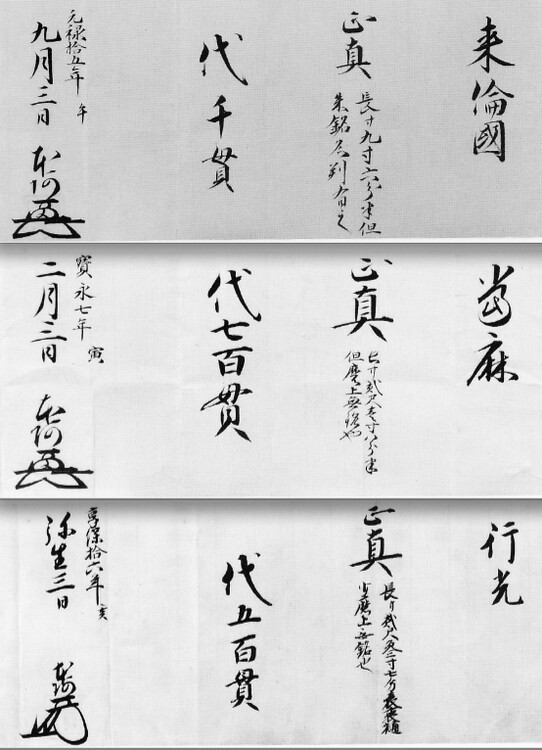 来倫國
正真
長サ九寸六分半但
朱銘判有之
代千貫
元禄拾五年 午
九月三日
本阿
當麻
正真
長サ貳尺壹寸八分半
但磨上無銘也
代七百貫
寶永七年 寅
二月三日
本阿
行光
正真
長サ貳尺三寸七分表裏樋
磨上無銘也
代五百貫
享保拾六年 亥
弥生三日
本阿